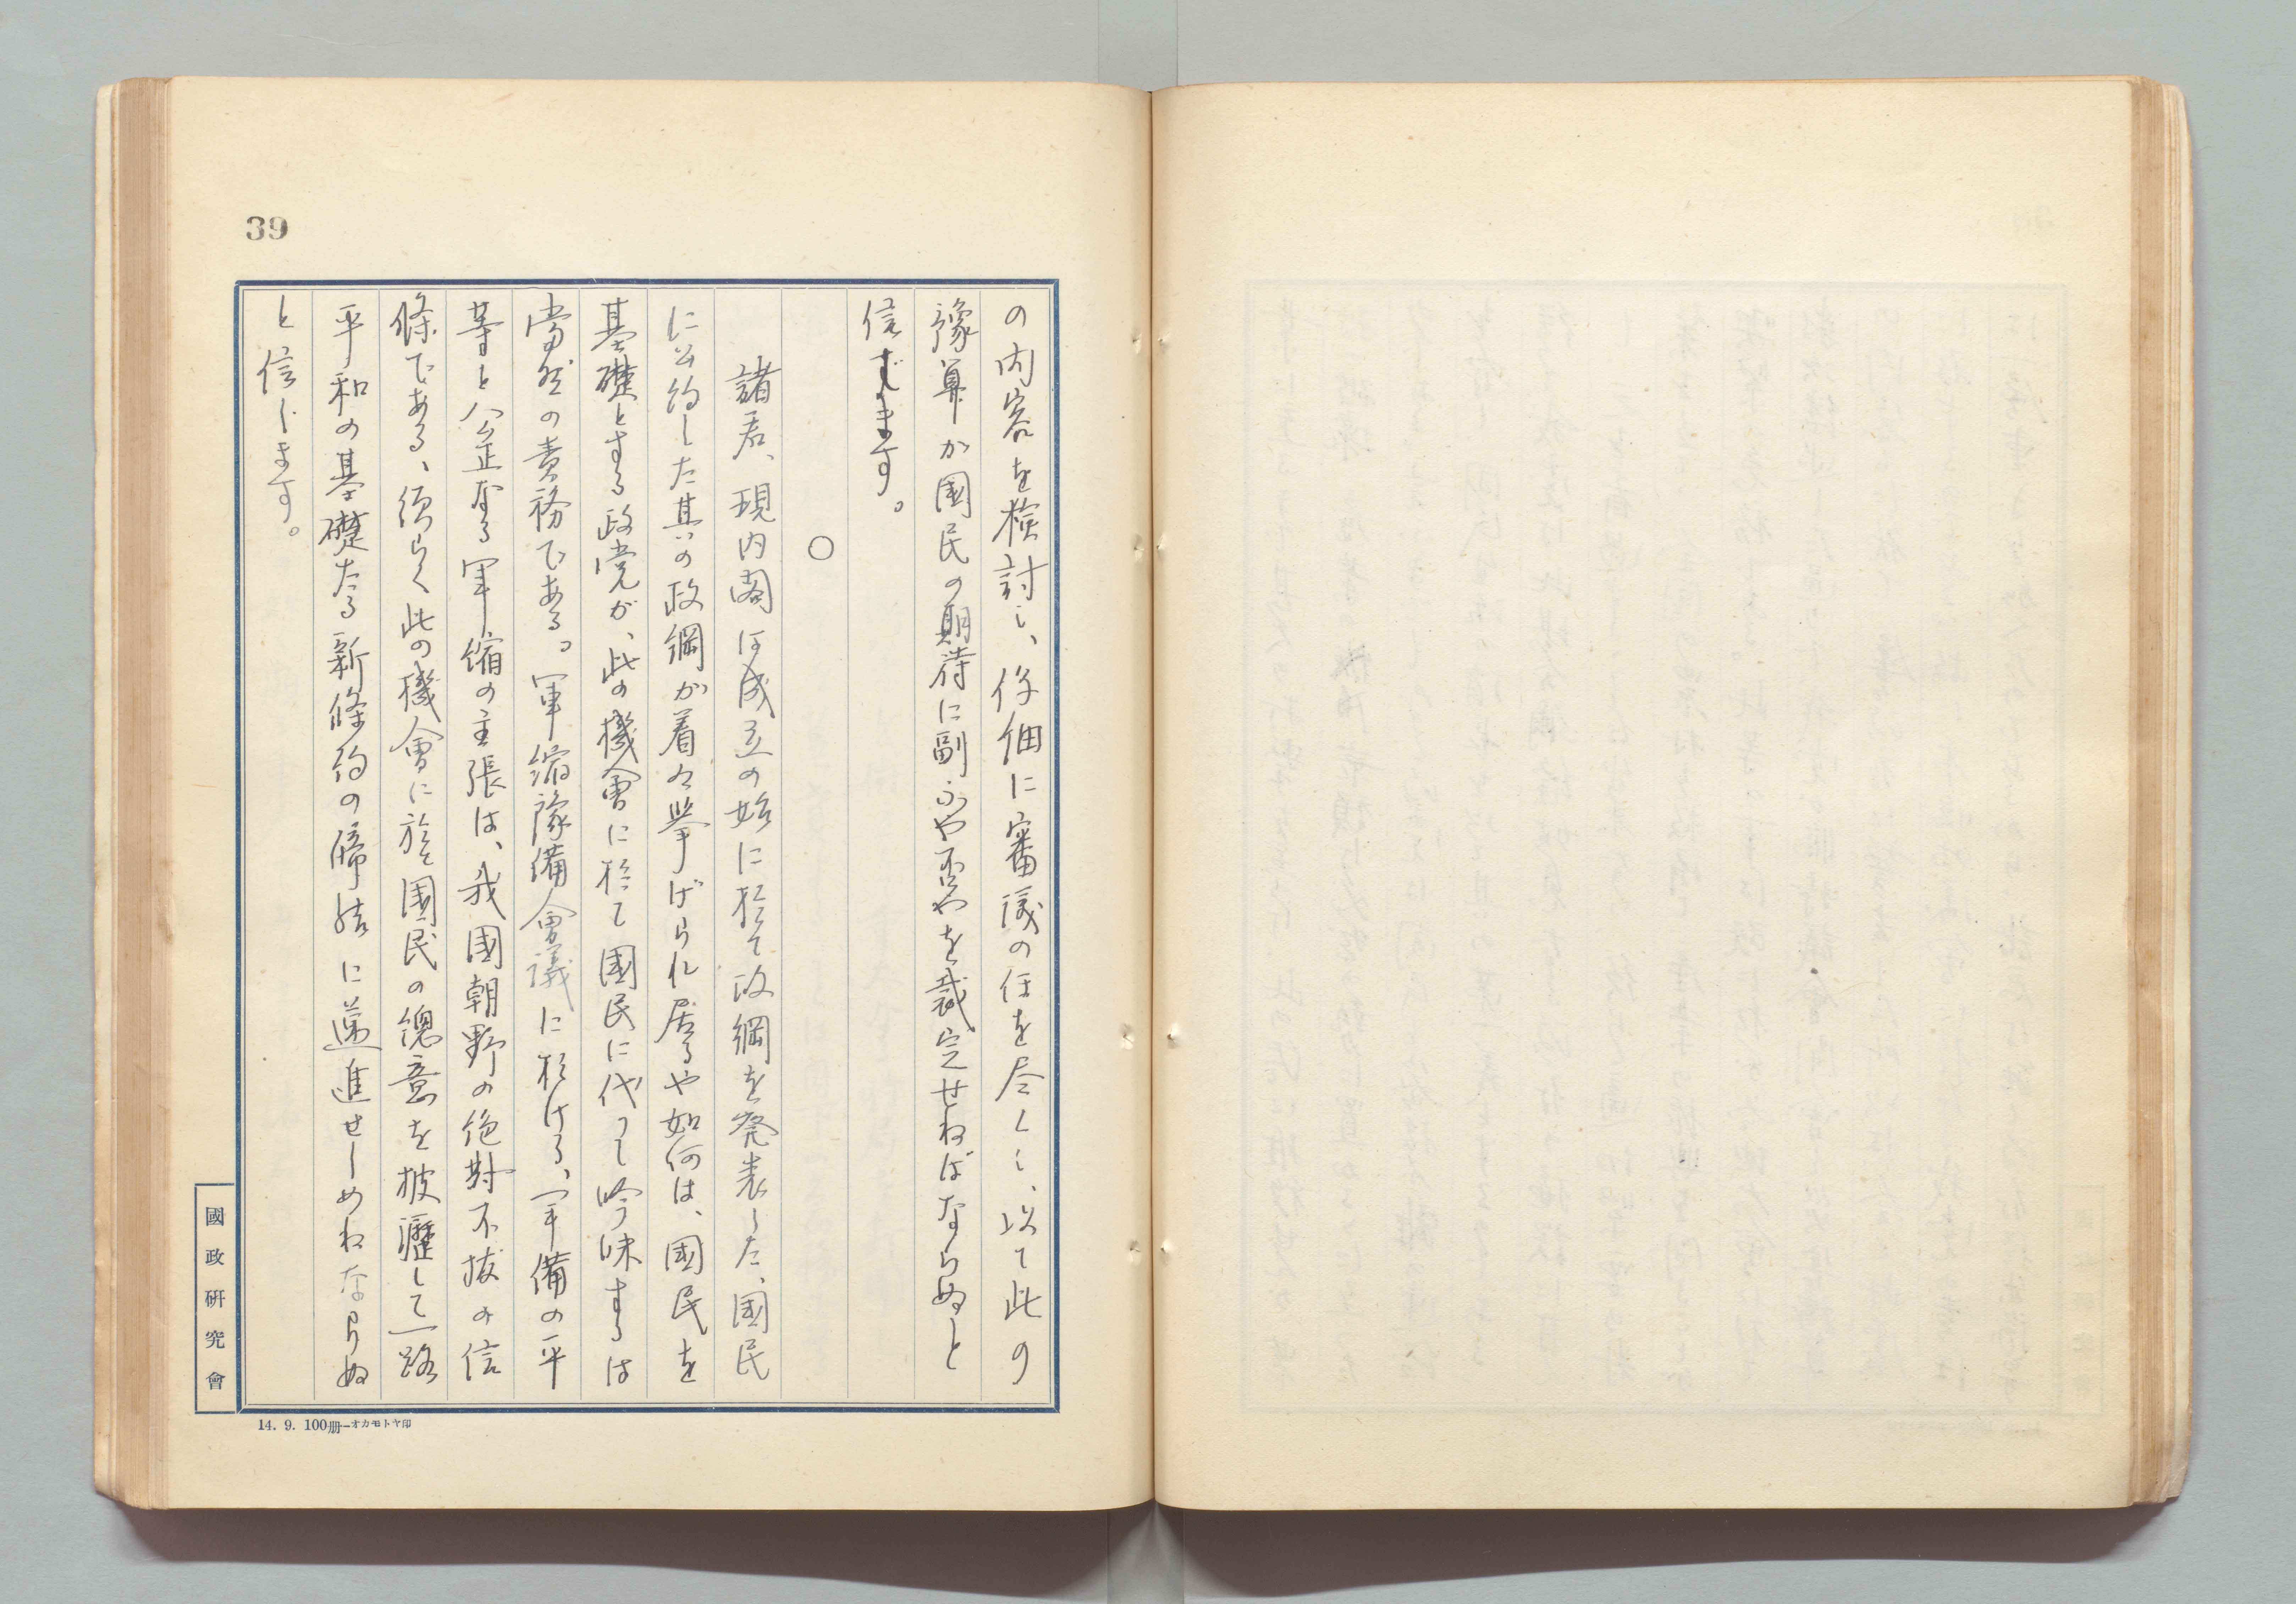 39
の内容を検討し、仔細に審議の任を尽くし、以て此の
豫算か國民の期待に副ふや否やを裁定せねばならぬと
信じます。
○
諸君、現内閣は成立の始に於て政綱を発表した、國民
に公約した其の政綱が着々挙げられ居るや如何は、國民を
基礎とする政党が、此の機會に於て國民に代って吟味するは
當然の責務である。軍縮豫備會議に於ける、軍備の平
等と公正なる軍縮の主張は、我國朝野の絶對不抜の信
條である、須らく此の機會に於て國民の總意を披瀝して一路
平和の基礎たる新條約の締結に邁進せしめねならぬ
と信じます。
國政研究會
14. 9. 100册—オカモトヤ印